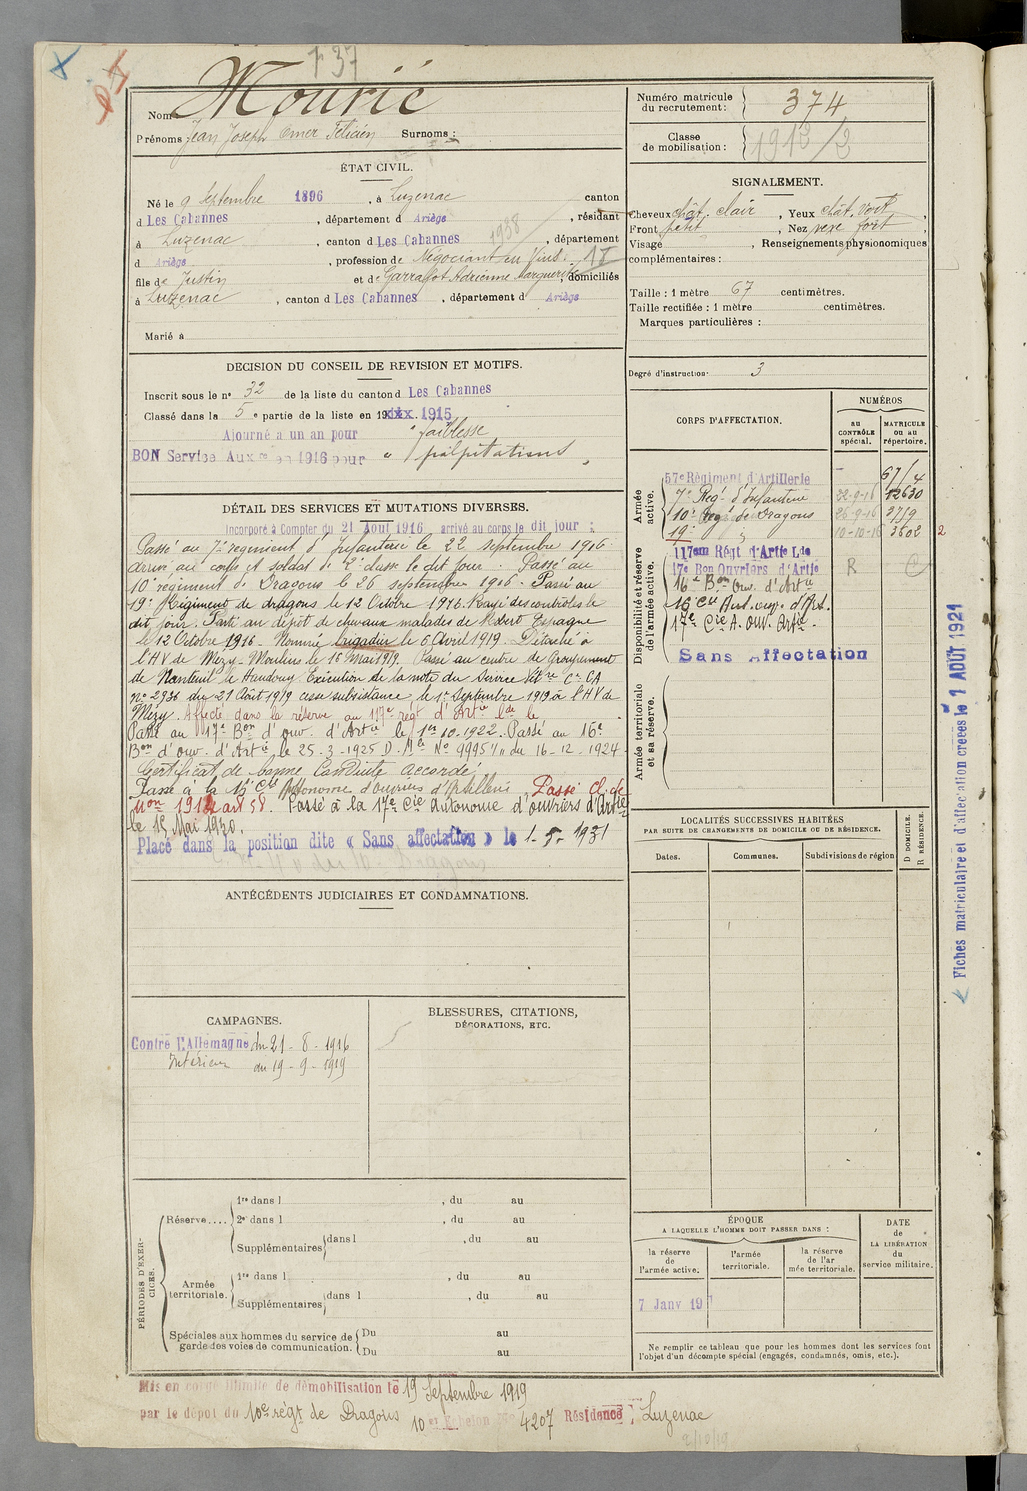 737
Nom Mourié
Prénoms Jean Joseph Omer Félicien Surnoms :
Numéro matricule du recrutement : 374
Classe de mobilisation : 1912/2
ÉTAT CIVIL.
Né le 9 Septembre 1896, à Luzenac canton
d Les Cabannes, département d Ariège, résidant
à Luzenac, canton d Les Cabannes, département
1938
d Ariège, profession de Négociant en Vins. 17
fils de Justin et de Garrabot Adrienne Marguerite, domiciliés
à Luzenac, canton d Les Cabannes, département d Ariège
Marié à
SIGNALEMENT.
Cheveux chât. clair, Yeux chât. vert,
Front petit, Nez fort,
Visage, Renseignements physionomiques
complémentaires :
Taille : 1 mètre 67 centimètres.
Taille rectifiée : 1 mètre centimètres.
Marques particulières :
Degré d'instruction : 3
DECISION DU CONSEIL DE REVISION ET MOTIFS.
Inscrit sous le n° 32 de la liste du canton d Les Cabannes
Classé dans la 5e partie de la liste en 19 1915
Ajourné a un an pour faiblesse
BON Service Auxre en 1916 pour palpitations,
DÉTAIL DES SERVICES ET MUTATIONS DIVERSES.
Incorporé à Compter du 21 Aout 1916 arrivé au corps le dit jour ;
Passé au 7e régiment d'Infanterie le 22 septembre 1916.
Arrivé au corps et soldat de 2e classe le dit jour. Passé au
10e régiment de Dragons le 26 septembre 1916. Passé au
19e Régiment de dragons le 12 Octobre 1916. Rayé des contrôles le
dit jour. Parti au dépôt de chevaux malades de Robert Espagne
le 12 Octobre 1916. Nommé brigadier le 6 Avril 1919. Détaché à
l'HV de Mézy-Moulins le 16 Mai 1919. Passé au centre de Groupement
de Nanteuil le Haudouy. Exécution de la note du Service Vétre Ce CA
N° 2936 du 21 Août 1919 cesse subsistance le 1er Septembre 1919 à l'HV de
Mézy. Affecté dans la réserve au 117e régt d'Artie Lde le
Passé au 17e Bon d'ouv. d'Artie le 1er 10-1922. Passé au 16e
Bon d'ouv. d'Artie le 25-3-1925 D. Mle N° 9995 1/11 du 16-12-1924
Certificat de bonne Conduite accordé.
Passé à la 15e Cie Autonome d'ouvriers d'Artillerie Passé Cl. de
Mon 1912 art 58. Passé à la 17e Cie Autonome d'ouvriers d'Artie
le 15 Mai 1930.
Placé dans la position dite « Sans affectation » le 1-5-1931
CORPS D'AFFECTATION.
NUMÉROS
au CONTRÔLE spécial.
MATRICULE ou au répertoire.
Armée active.
57e Régiment d'Artillerie
7e Regt d'Infanterie 22-9-16 12630
10e Regt de Dragons 26-9-16 3719
19e 10-10-16 3602 2
Disponibilité et réserve de l'armée active.
117em Régt d'Artie Lde
17e Bon Ouvriers d'Artie R
16e Bon Ouv. d'Artie
15 Cie Aut. ouv. d'Art.
17e Cie A. Ouv. Artie.
Sans Affectation
Armée territoriale et sa réserve.
LOCALITÉS SUCCESSIVES HABITÉES
PAR SUITE DE CHANGEMENTS DE DOMICILE OU DE RÉSIDENCE.
Dates.
Communes.
Subdivisions de région
D DOMICILE.
R RÉSIDENCE.
Fiches matriculaire et d'affectation créées le 1 AOUT 1921
ANTÉCÉDENTS JUDICIAIRES ET CONDAMNATIONS.
CAMPAGNES.
Contre L'Allemagne du 21-8-1916
Intérieur au 19-9-1919
BLESSURES, CITATIONS,
DÉCORATIONS, ETC.
PÉRIODES D'EXERCICES.
Réserve....
1re dans l , du au
2e dans l , du au
Supplémentaires dans l , du au
Armée territoriale.
1re dans l , du au
Supplémentaires dans l , du au
Spéciales aux hommes du service de
garde des voies de communication.
Du au
Du au
ÉPOQUE
A LAQUELLE L'HOMME DOIT PASSER DANS :
la réserve de l'armée active.
l'armée territoriale.
la réserve de l'armée territoriale.
DATE de LA LIBÉRATION du service militaire.
7 Janv 19
Ne remplir ce tableau que pour les hommes dont les services font
l'objet d'un décompte spécial (engagés, condamnés, omis, etc.).
Mis en congé illimité de démobilisation le 19 Septembre 1919
par le dépôt du 10e régt de Dragons 10e Echelon N° 4207 Résidence : Luzenac
2/10/19